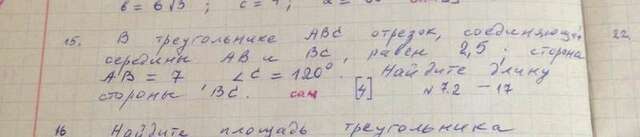 в = 6√3 ;
15. В треугольнике ABC отрезок, соединяющий 22.
середины AB и BC, равен 2,5 ; сторона
AB = 7 ∠C = 120°. Найдите длину
стороны BC. сам [4] №7.2 - 17
16 Найдите площадь треугольника